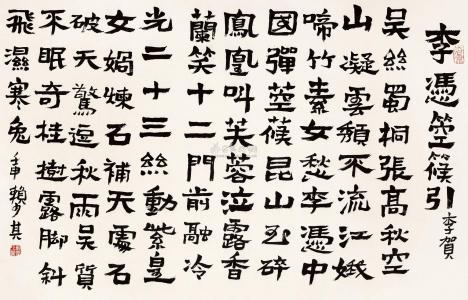 李憑箜篌引
李賀
吳絲蜀桐張高秋空
山凝雲頹不流江娥
啼竹素女愁李憑中
國彈箜篌昆山玉碎
鳳凰叫芙蓉泣露香
蘭笑十二門前融冷
光二十三絲動紫皇
女媧煉石補天處石
破天驚逗秋雨吳質
不眠奇桂樹露腳斜
飛濕寒兔
壬申 賴少其